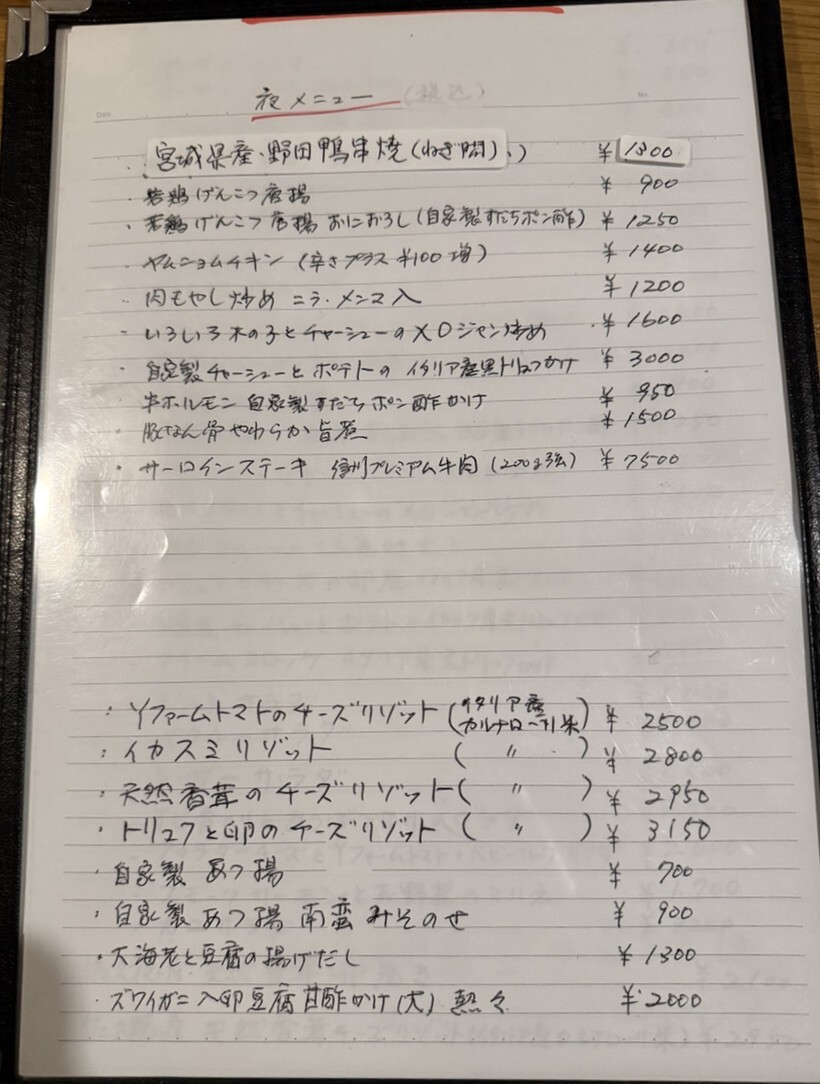 夜メニュー (税込)
宮城県産・野田鴨串焼(ねぎ間)、) ¥1300
・若鶏げんこつ唐揚 ¥900
・若鶏げんこつ唐揚 おにおろし(自家製すだちポン酢) ¥1250
・ヤムニョムチキン (辛さプラス ¥100増) ¥1400
・肉もやし炒め ニラ・メンマ入 ¥1200
・いろいろ木の子とチャーシューのXOジャン炒め ¥1600
・自家製チャーシューとポテトの イタリア産黒トリュフかけ ¥3000
・牛ホルモン 自家製すだちポン酢かけ ¥950
・豚なん骨やわらか旨煮 ¥1500
・サーロインステーキ 信州プレミアム牛肉 (200g強) ¥7500
・Yファームトマトのチーズリゾット (イタリア産カルナローリ米) ¥2500
・イカスミリゾット ( 〃 ) ¥2800
・天然香茸のチーズリゾット ( 〃 ) ¥2950
・トリュフと卵のチーズリゾット ( 〃 ) ¥3150
・自家製 あつ揚 ¥700
・自家製 あつ揚 南蛮みそのせ ¥900
・大海老と豆腐の揚げだし ¥1300
・ズワイガニ入卵豆腐甘酢かけ(大) 熱々 ¥2000